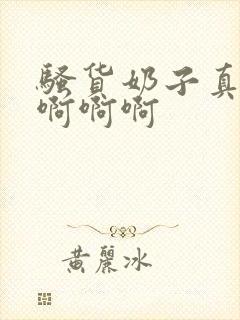 骚货奶子真
啊啊啊
黄麗冰